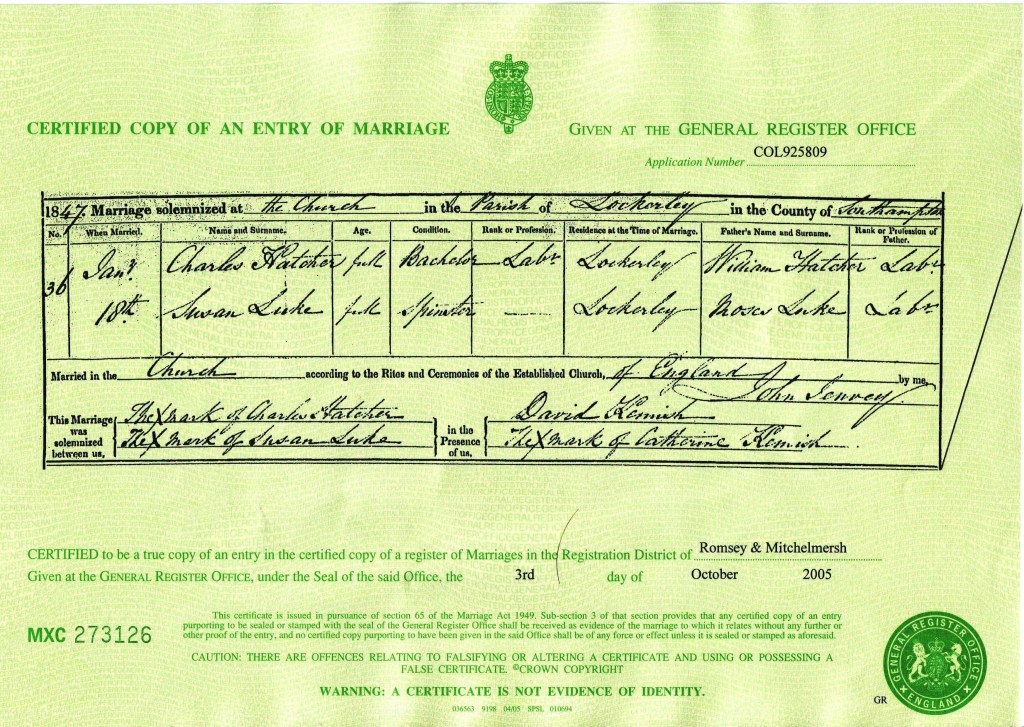 CERTIFIED COPY OF AN ENTRY OF MARRIAGE
GIVEN AT THE GENERAL REGISTER OFFICE
Application Number COL925809
1847. Marriage solemnized at the Church in the Parish of Lockerley in the County of Southampton
No. When Married. Name and Surname. Age. Condition. Rank or Profession. Residence at the Time of Marriage. Father's Name and Surname. Rank or Profession of Father.
36 Jany Charles Hatcher full Bachelor Labr Lockerley William Hatcher Labr
18th Susan Luke full Spinster Lockerley Moses Luke Labr
Married in the Church according to the Rites and Ceremonies of the Established Church, of England by me,
John Jenvey
This Marriage was solemnized between us,
The X mark of Charles Hatcher
The X mark of Susan Luke
in the Presence of us.
David Kemish
The X mark of Catherine Kemish
CERTIFIED to be a true copy of an entry in the certified copy of a register of Marriages in the Registration District of Romsey & Mitchelmersh
Given at the GENERAL REGISTER OFFICE, under the Seal of the said Office, the 3rd day of October 2005
This certificate is issued in pursuance of section 65 of the Marriage Act 1949. Sub-section 3 of that section provides that any certified copy of an entry
purporting to be sealed or stamped with the seal of the General Register Office shall be received as evidence of the marriage to which it relates without any further or
other proof of the entry, and no certified copy purporting to have been given in the said Office shall be of any force or effect unless it is sealed or stamped as aforesaid.
MXC 273126
CAUTION: THERE ARE OFFENCES RELATING TO FALSIFYING OR ALTERING A CERTIFICATE AND USING OR POSSESSING A
FALSE CERTIFICATE. ©CROWN COPYRIGHT
WARNING: A CERTIFICATE IS NOT EVIDENCE OF IDENTITY.
036563 9198 04/05 SPSL 010694
GR
GENERAL REGISTER OFFICE
ENGLAND